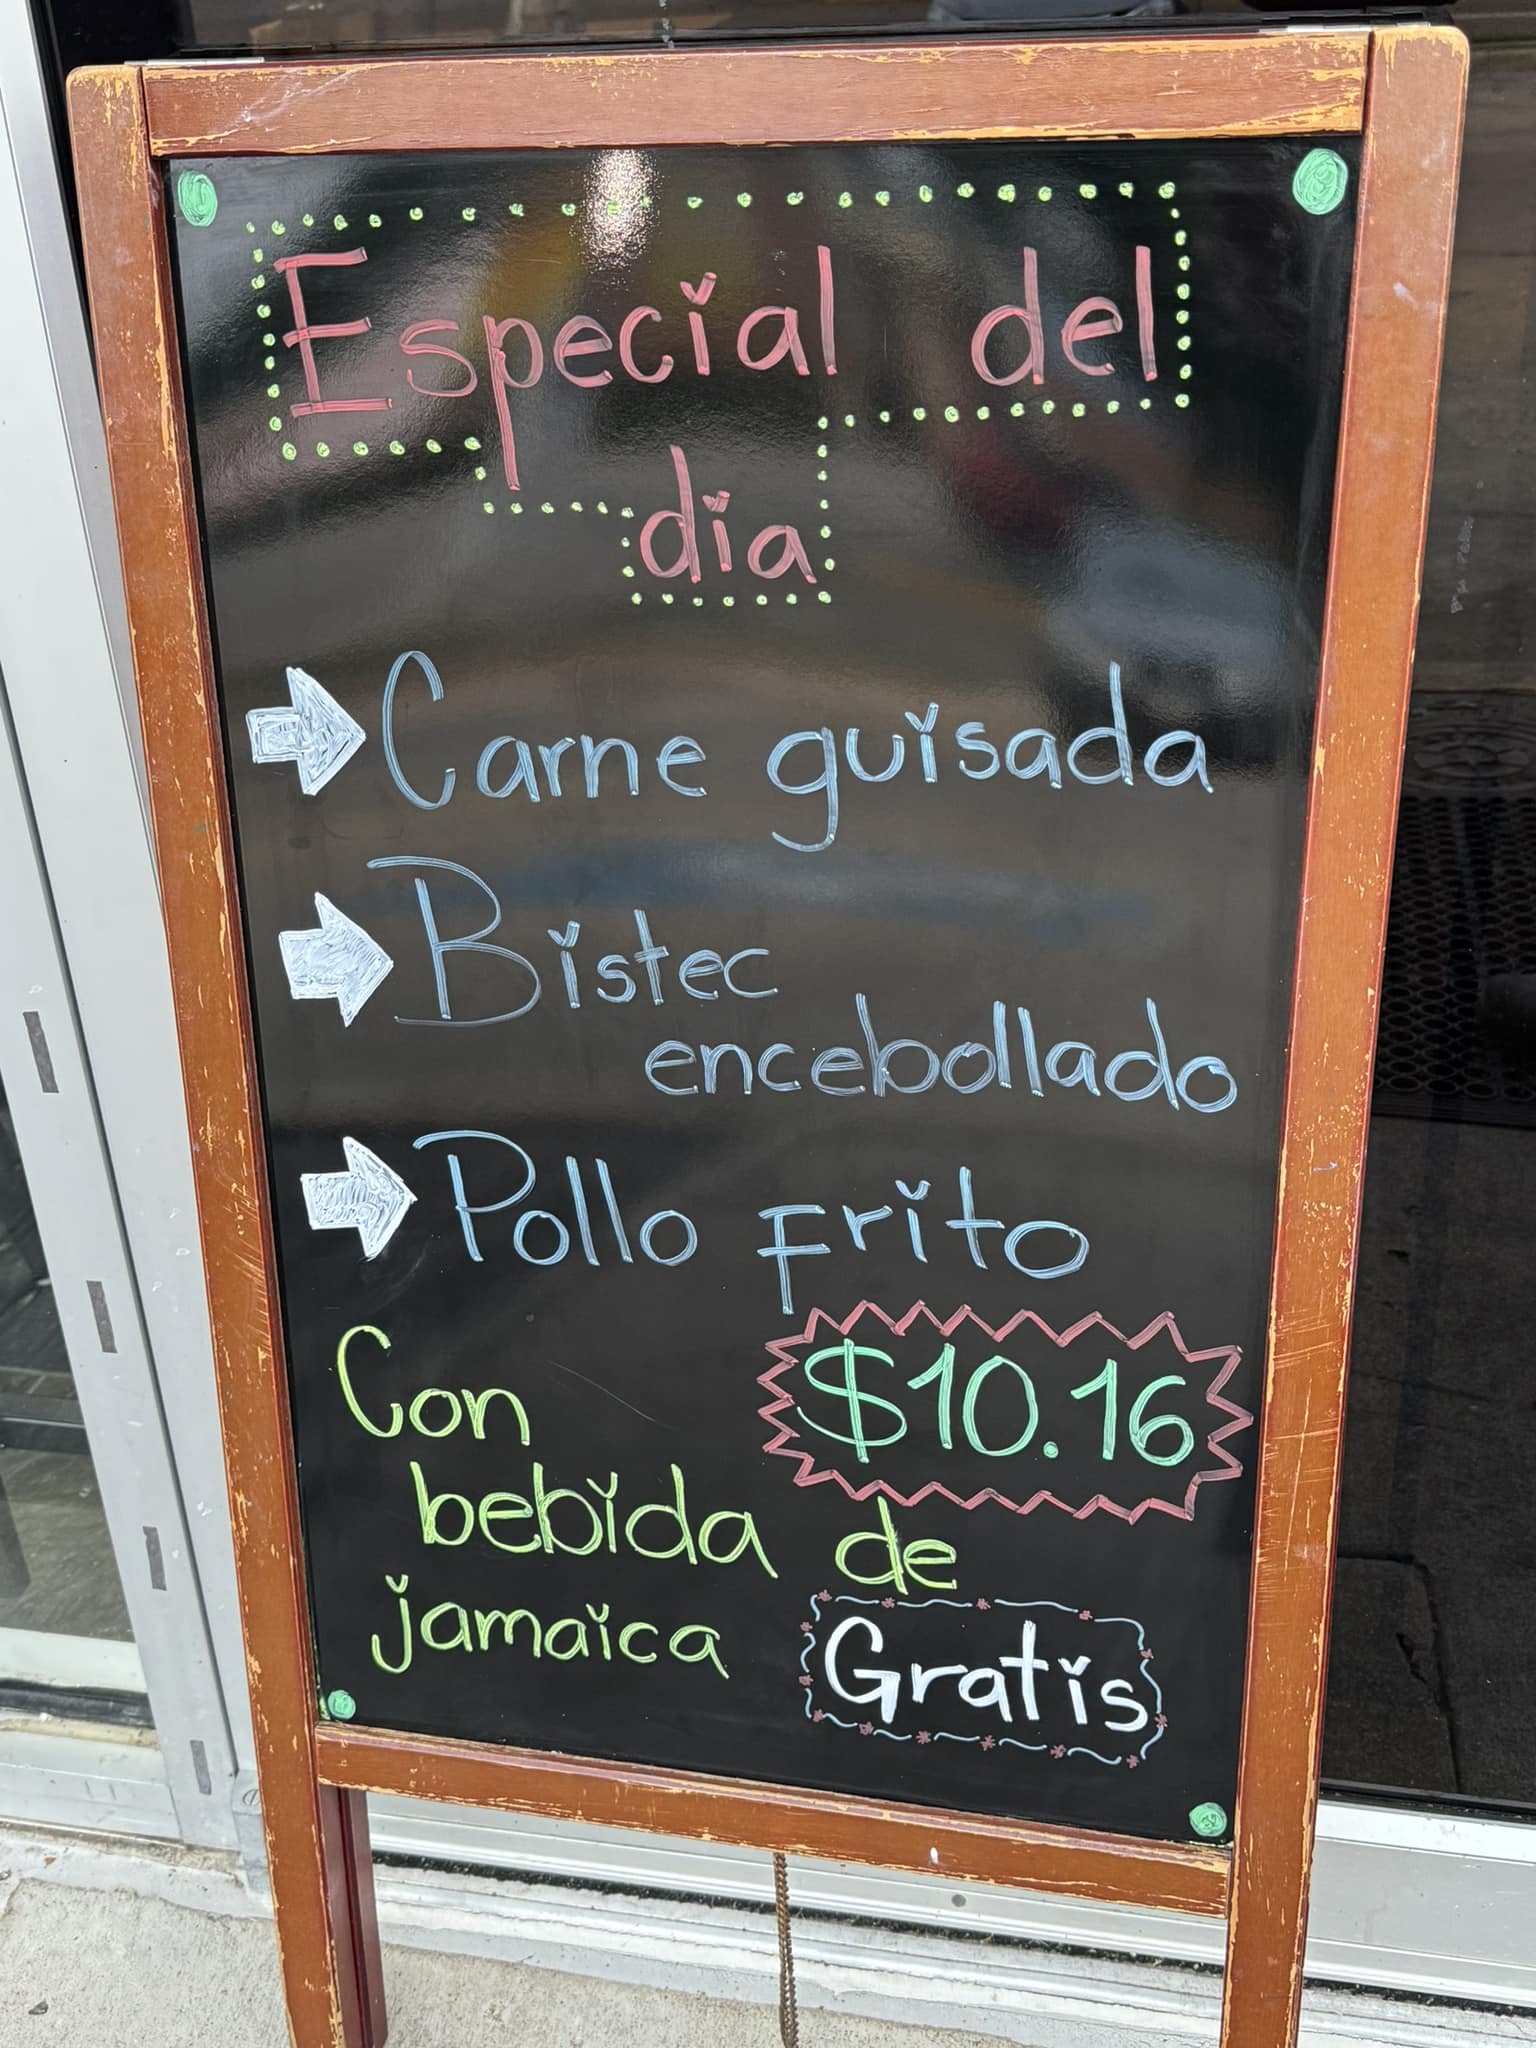 Especial del
dia
Carne guisada
Bistec
encebollado
Pollo Frito
$10.16
Con
bebida de
jamaica
Gratis